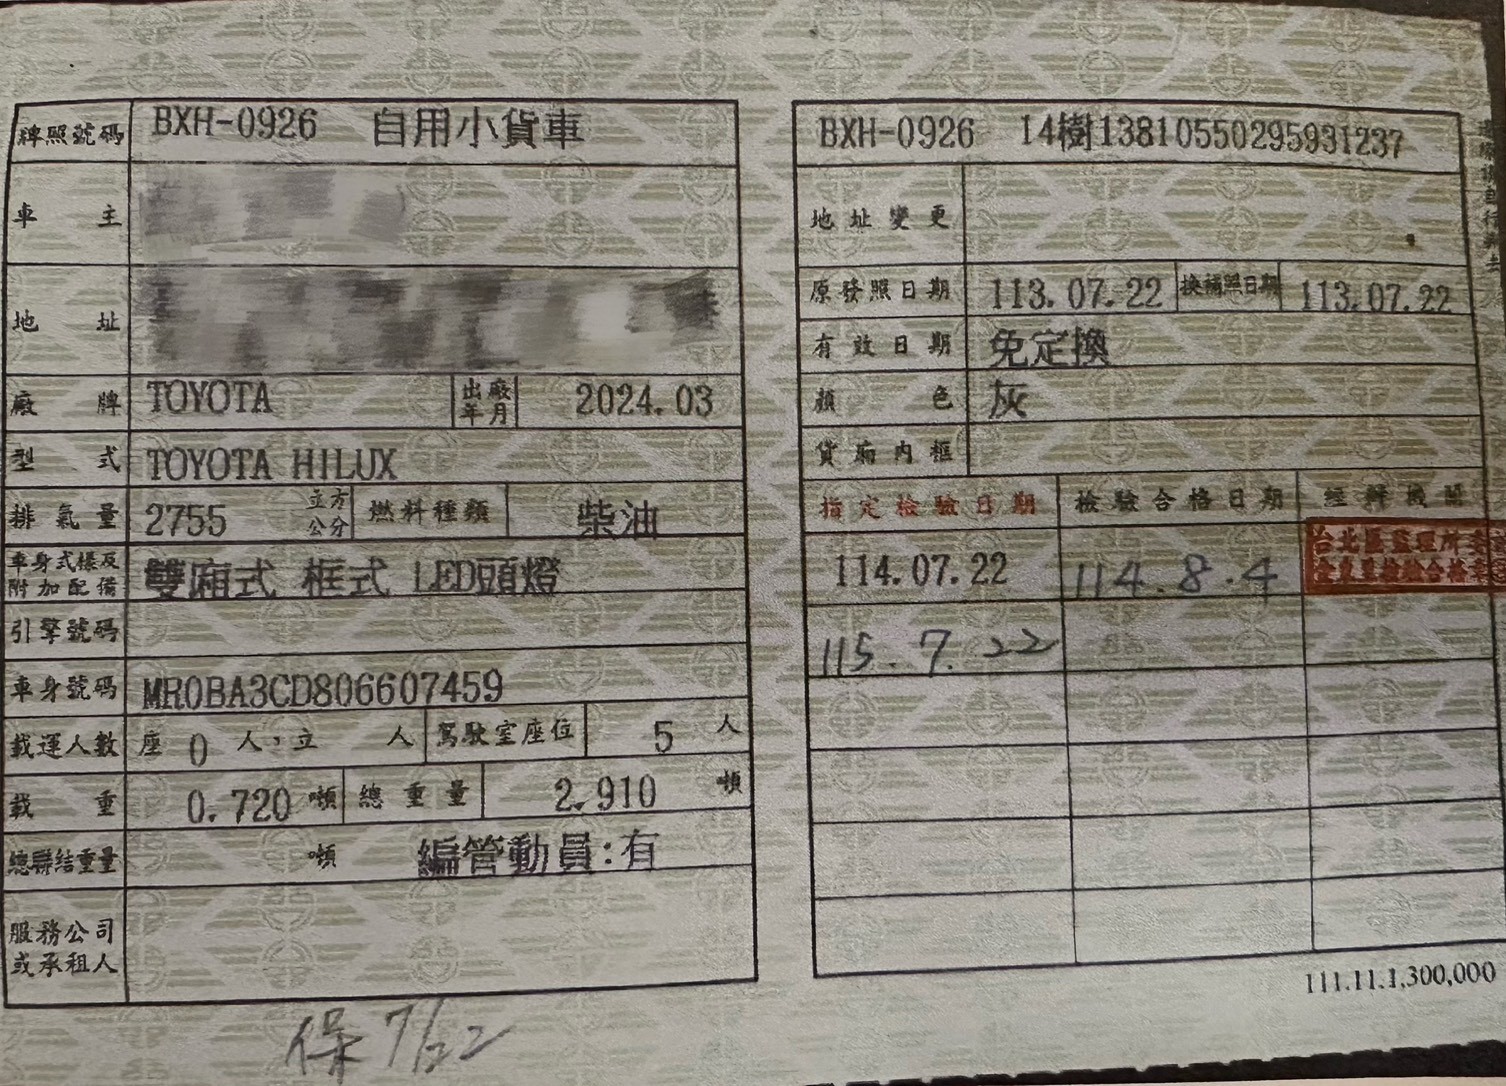 牌照號碼 BXH-0926 自用小貨車
車主
地址
廠牌 TOYOTA 出廠年月 2024.03
型式 TOYOTA HILUX
排氣量 2755 立方公分 燃料種類 柴油
車身式樣及附加配備 雙廂式 框式 LED頭燈
引擎號碼
車身號碼 MR0BA3CD806607459
載運人數 座 0 人,立 人 駕駛室座位 5 人
載重 0.720 噸 總重量 2.910 噸
總聯結重量 噸 編管動員:有
服務公司或承租人
保 7/22
BXH-0926 14樹13810550295931237
地址變更
原發照日期 113.07.22 換補照日期 113.07.22
有效日期 免定換
顏色 灰
貨廂內框
指定檢驗日期 檢驗合格日期 經辦機關
114.07.22 114.8.4 台北區監理所委
115.7.22
111.11.1,300,000